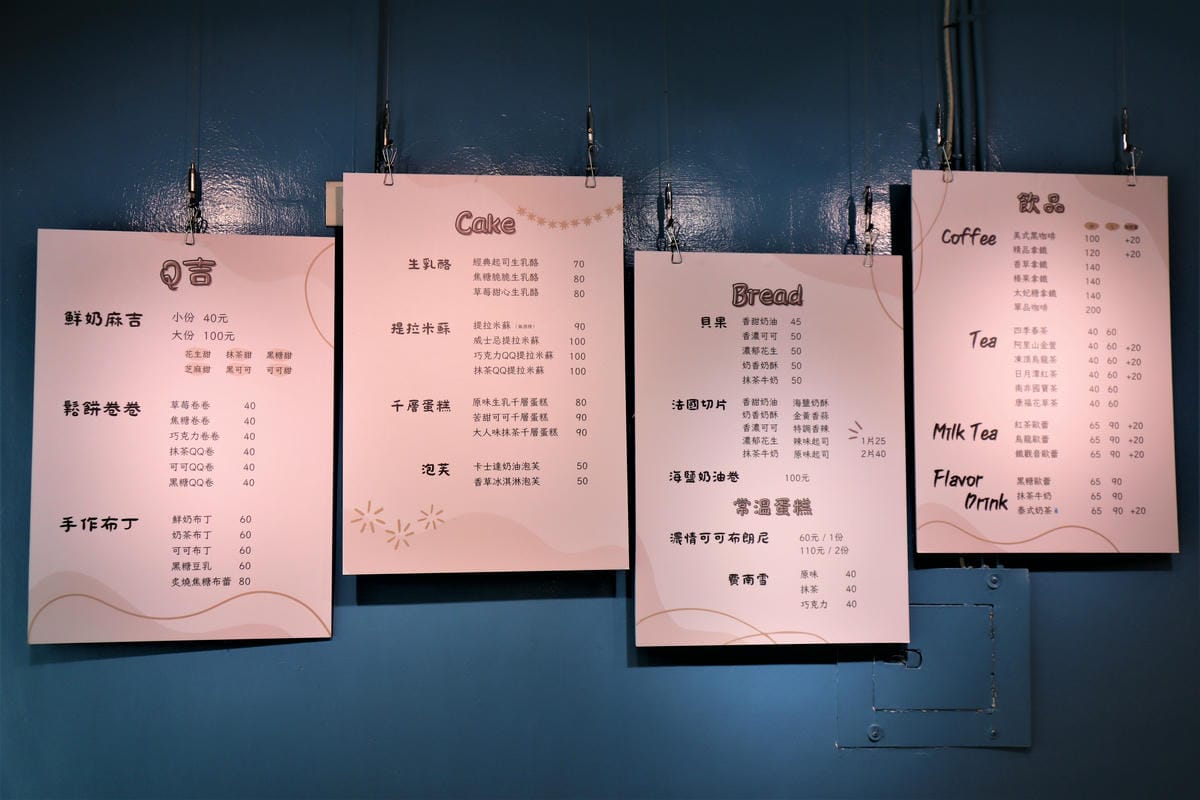 Q吉
鮮奶麻吉
小份 40元
大份 100元
花生甜 抹茶甜 黑糖甜
芝麻甜 黑可可 可可甜
鬆餅卷卷
草莓卷卷 40
焦糖卷卷 40
巧克力卷卷 40
抹茶QQ卷 40
可可QQ卷 40
黑糖QQ卷 40
手作布丁
鮮奶布丁 60
奶茶布丁 60
可可布丁 60
黑糖豆乳 60
炙燒焦糖布蕾 80
Cake
生乳酪
經典起司生乳酪 70
焦糖脆脆生乳酪 80
草莓甜心生乳酪 80
提拉米蘇
提拉米蘇 90
威士忌提拉米蘇 100
巧克力QQ提拉米蘇 100
抹茶QQ提拉米蘇 100
千層蛋糕
原味生乳千層蛋糕 80
苦甜可可千層蛋糕 90
大人味抹茶千層蛋糕 90
泡芙
卡士達奶油泡芙 50
香草冰淇淋泡芙 50
Bread
貝果
香甜奶油 45
香濃可可 50
濃郁花生 50
奶香奶酥 50
抹茶牛奶 50
法國切片
香甜奶油 海鹽奶酥
奶香奶酥 金黃香蒜
香濃可可 特調香辣
濃郁花生 辣味起司 1片25
抹茶牛奶 原味起司 2片40
海鹽奶油卷 100元
常溫蛋糕
濃情可可布朗尼
60元 / 1份
110元 / 2份
費南雪
原味 40
抹茶 40
巧克力 40
飲品
Coffee
美式黑咖啡 100 +20
精品拿鐵 120 +20
香草拿鐵 140
榛果拿鐵 140
太妃糖拿鐵 140
單品咖啡 200
Tea
四季春茶 40 60
阿里山金萱 40 60 +20
凍頂烏龍茶 40 60 +20
日月潭紅茶 40 60 +20
南非國寶茶 40 60
康福花草茶 40 60
Milk Tea
紅茶歐蕾 65 90 +20
烏龍歐蕾 65 90 +20
鐵觀音歐蕾 65 90 +20
Flavor Drink
黑糖歐蕾 65 90
抹茶牛奶 65 90
泰式奶茶 65 90 +20